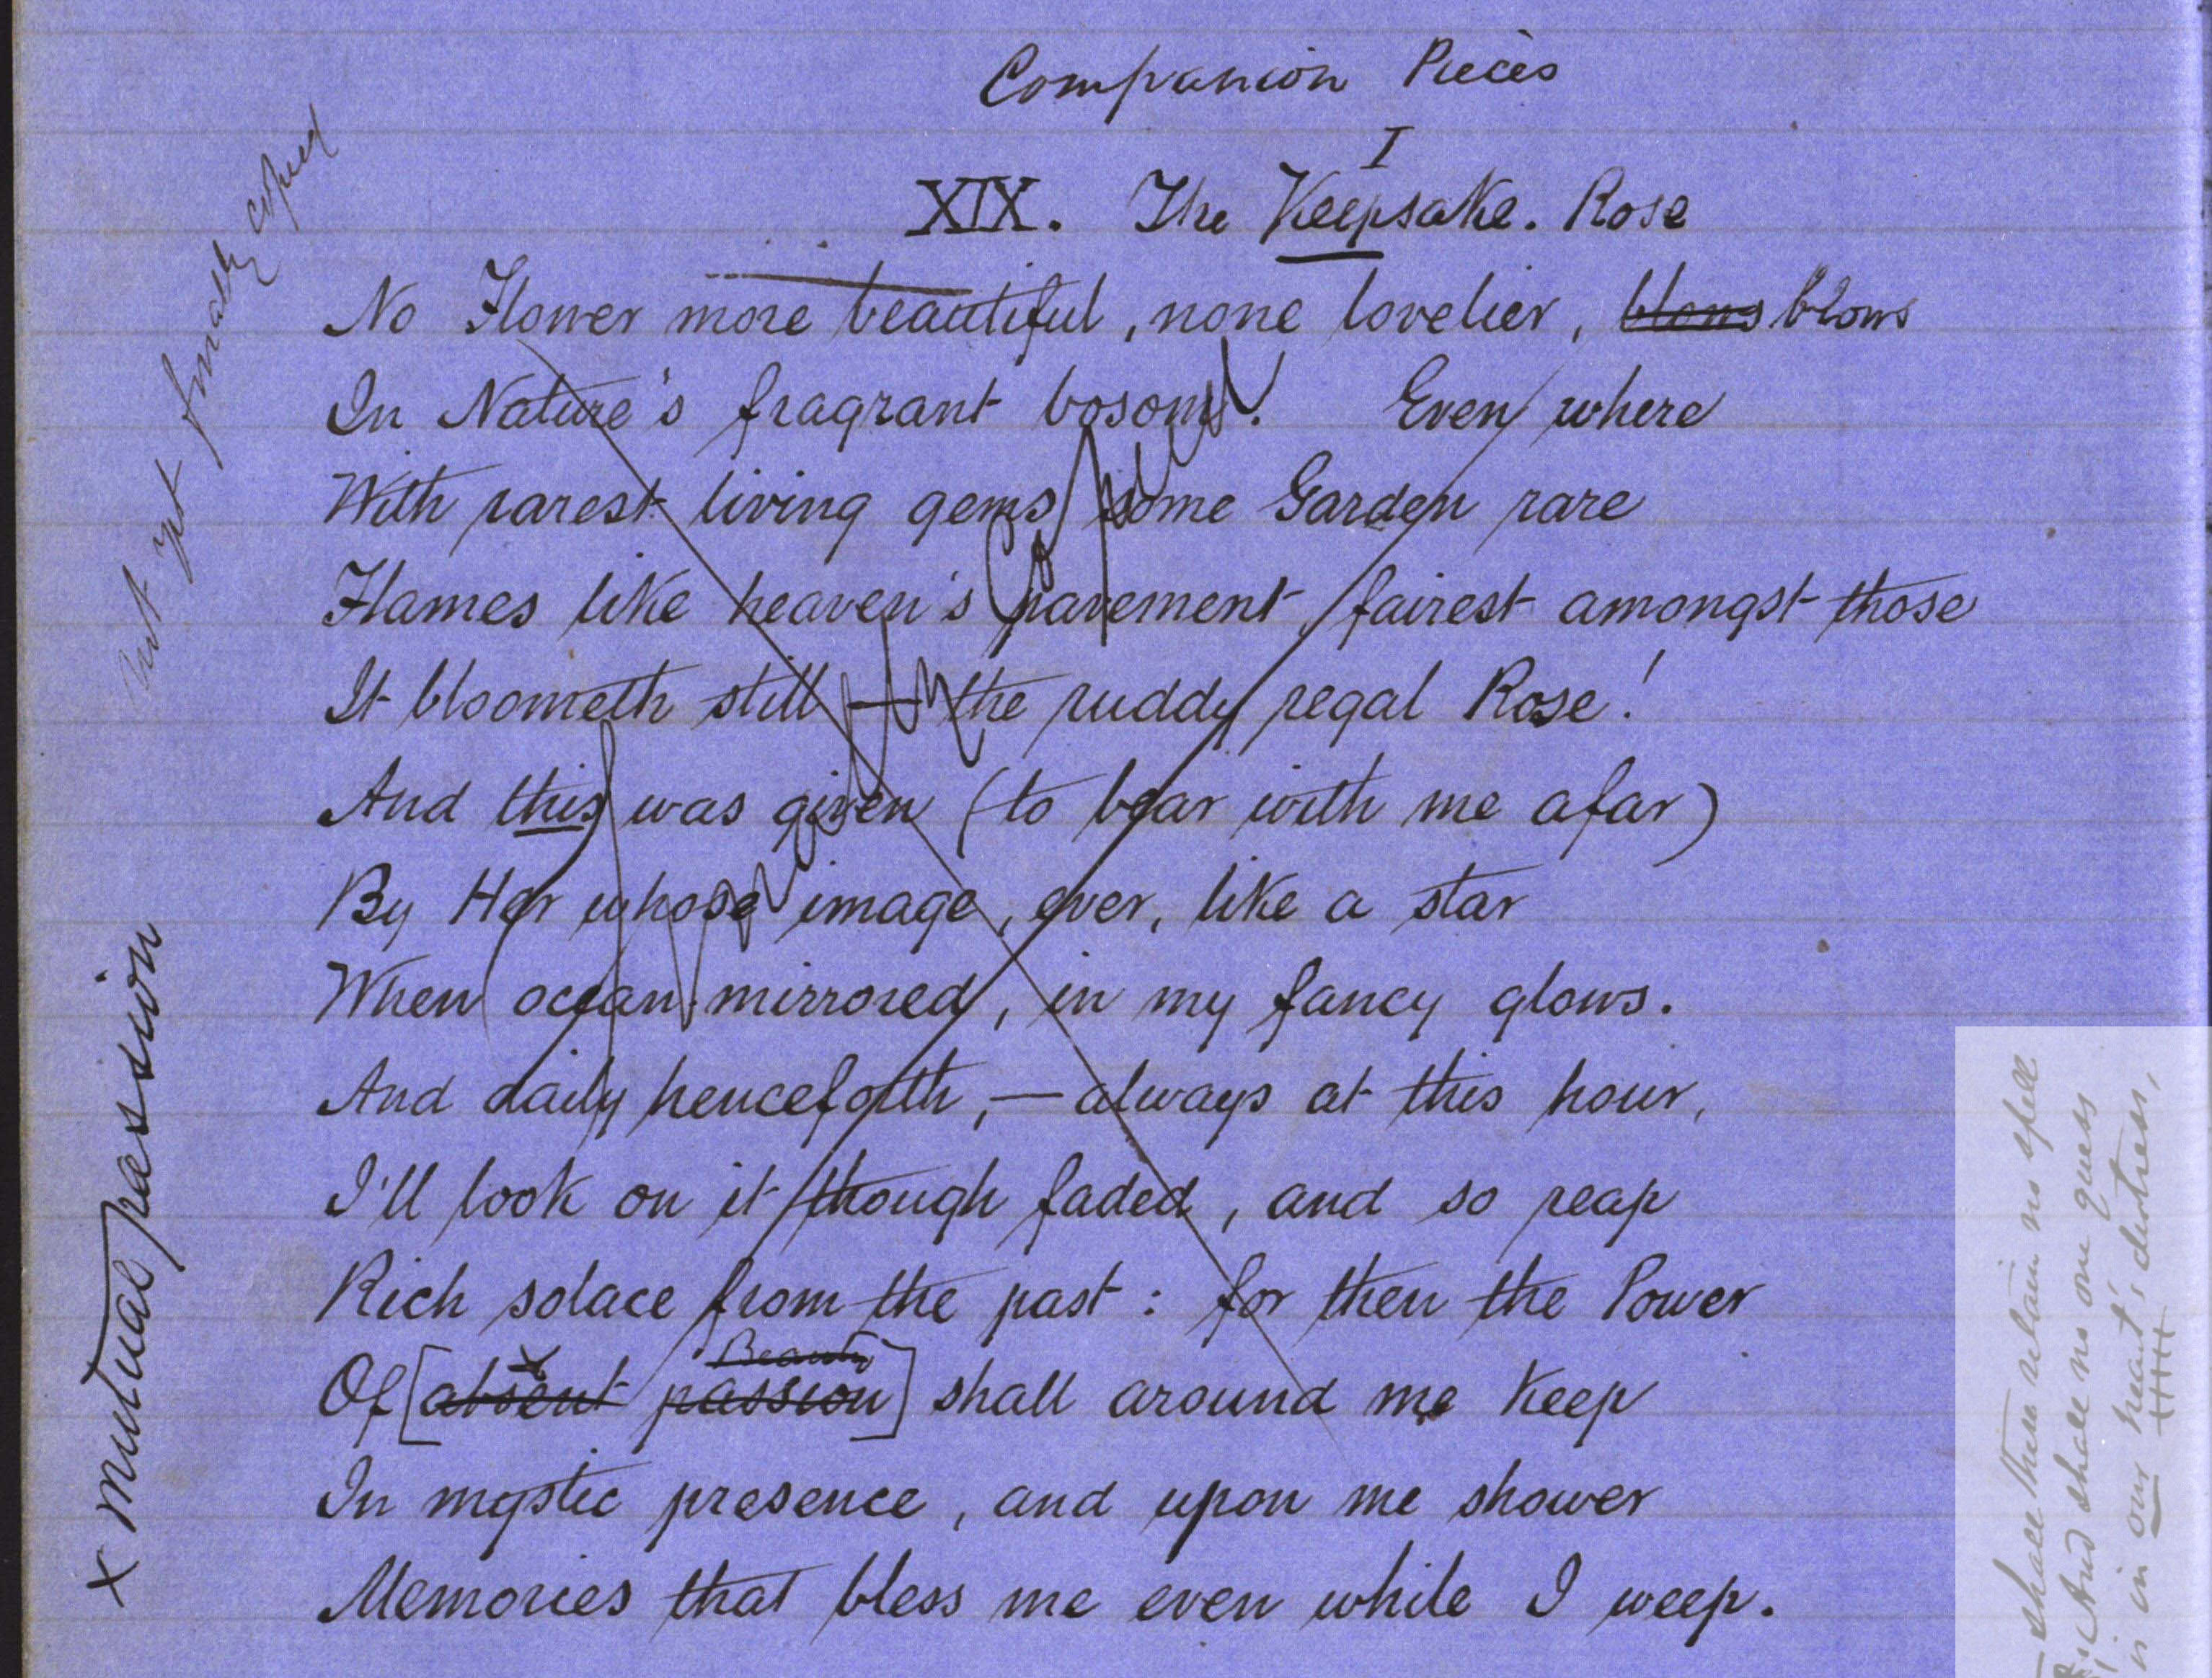 Companion Pieces
I
XIX. The Keepsake. Rose
No Flower more beautiful, none lovelier, blows blows
In Nature's fragrant bosom. Even where
With rarest living gems some Garden rare
Flames like heaven's pavement, fairest amongst those
It bloometh still — the ruddy regal Rose!
And this was given (to bear with me afar)
By Her whose image, ever, like a star
When ocean-mirrored, in my fancy glows.
And daily henceforth, — always at this hour,
I'll look on it though faded, and so reap
Rich solace from the past: for then the Power
Beauty
Of [absent passion] shall around me keep
In mystic presence, and upon me shower
Memories that bless me even while I weep.
x mutual passion
but yet finally copied
shall then retain no spell
And shall no one guess
in our heart's distress,